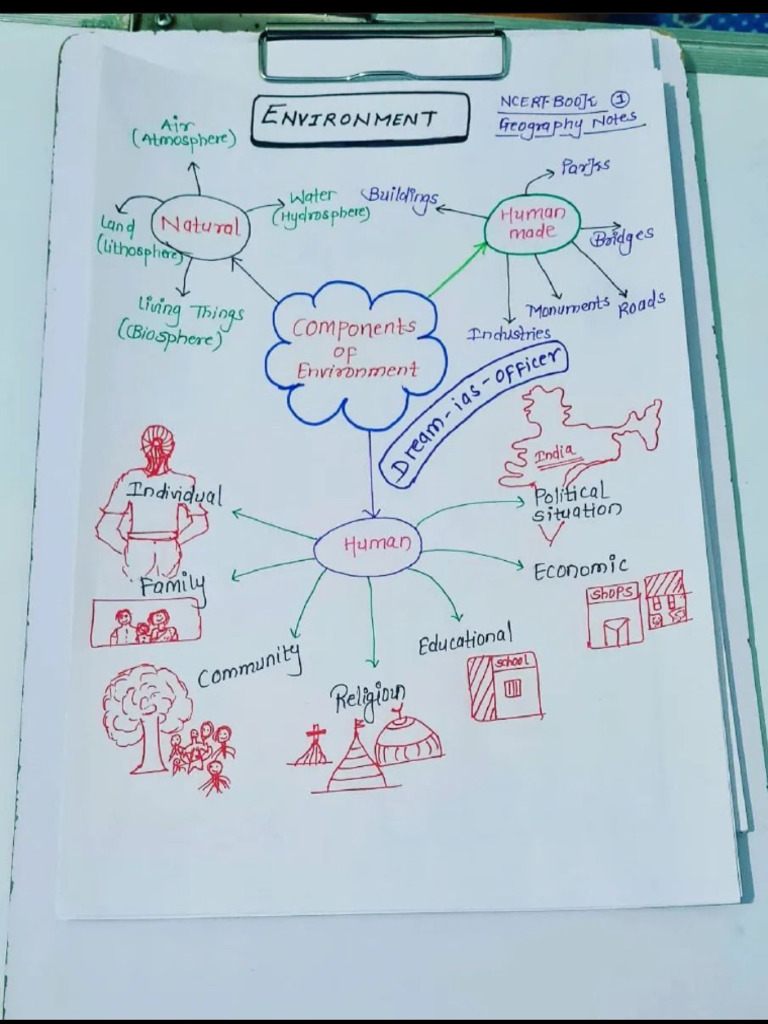 ENVIRONMENT
NCERT-BOOK ①
Geography Notes
Air
(Atmosphere)
Land
(Lithosphere)
Natural
Water
(Hydrosphere)
Living Things
(Biosphere)
Buildings
Parks
Human
made
Bridges
Roads
Monuments
Industries
Components
OF
Environment
Dream-ias-officer
Human
Individual
Family
Community
Religious
Educational
School
Economic
Shops
India
Political
situation